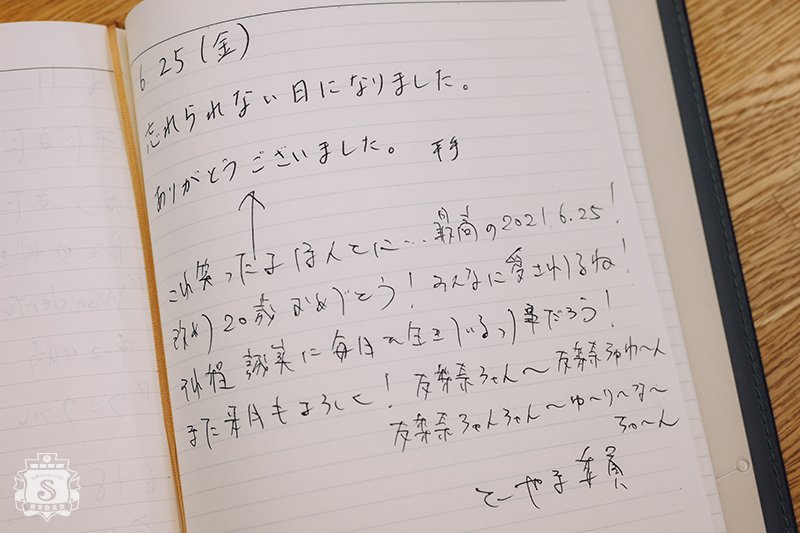 6.25(金)
忘れられない日になりました。
ありがとうございました。 平手
これ笑ったよほんとに…最高の2021.6.25!
改めり20歳おめでとう!みんなに愛されてるね!
それ程誠実に毎日を生きているっ事だろう!
また来月もよろしく! 友梨奈ちゃん〜友梨奈ちゅわ〜ん
友梨奈ちゃんちゃん〜ゆ〜り〜な〜
ちゃ〜ん
とーやま委員
S